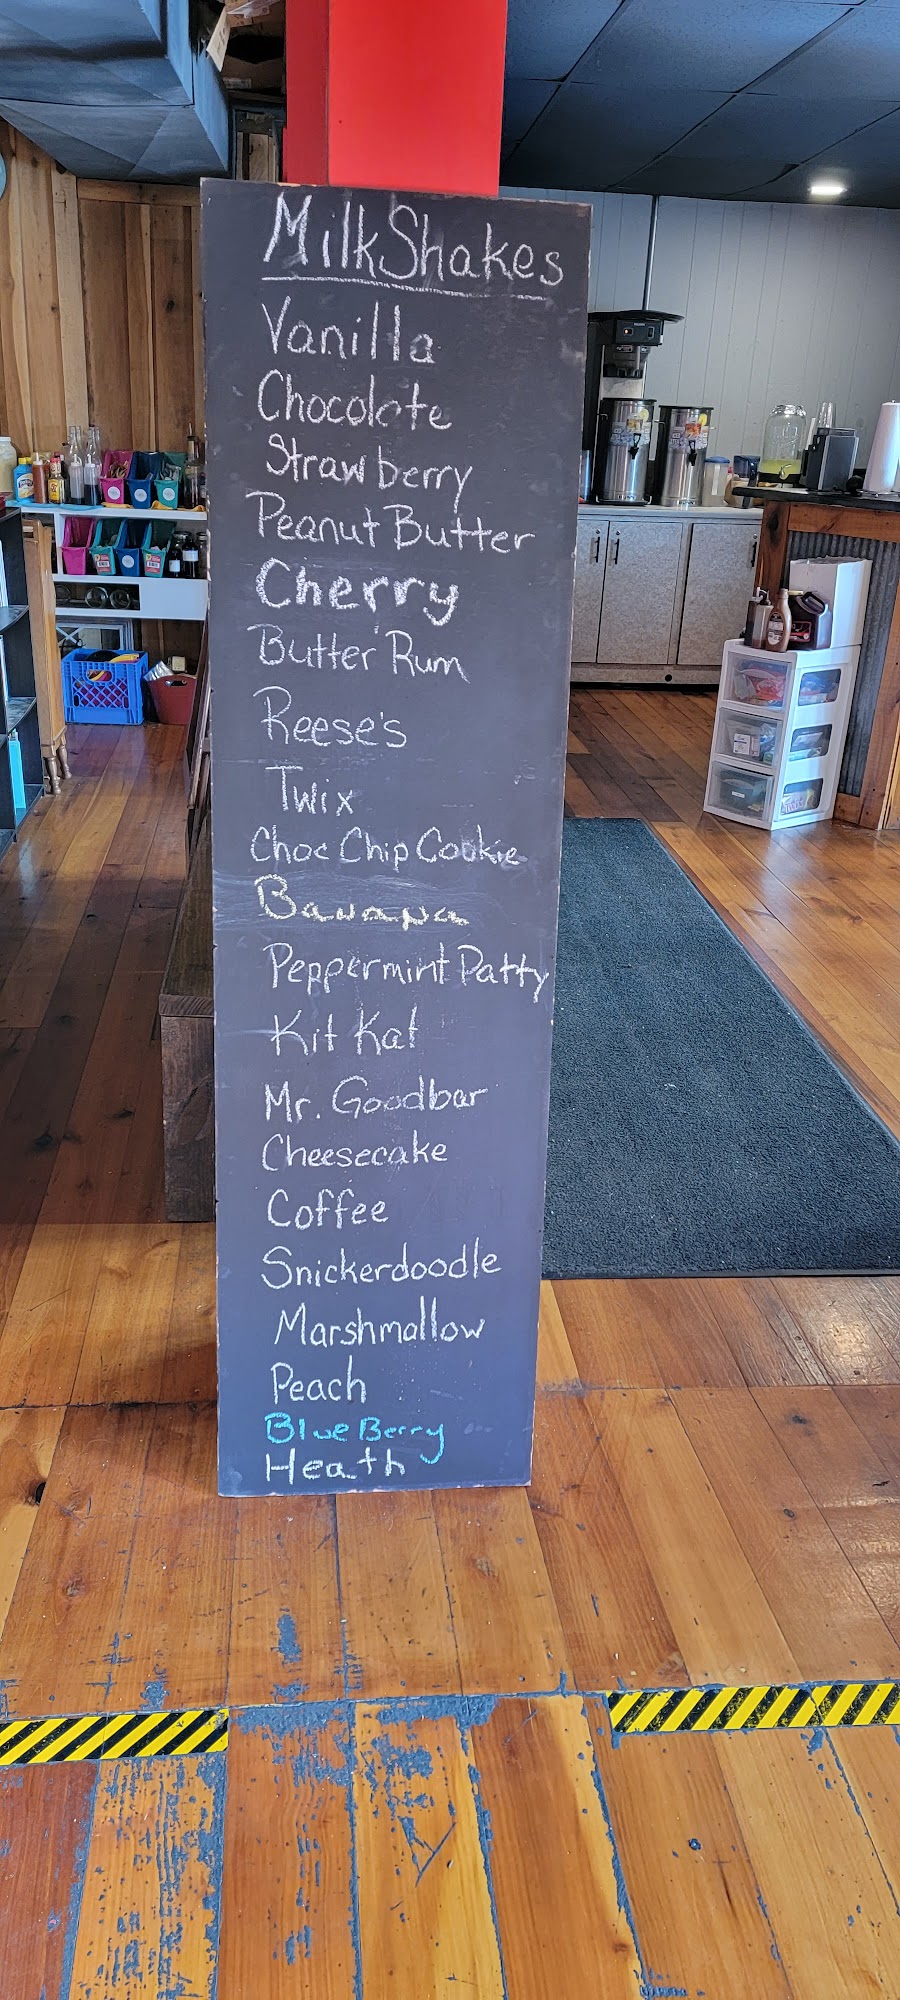 MilkShakes
Vanilla
Chocolate
Strawberry
Peanut Butter
Cherry
Butter Rum
Reese's
Twix
Choc Chip Cookie
Banana
Peppermint Patty
Kit Kat
Mr. Goodbar
Cheesecake
Coffee
Snickerdoodle
Marshmallow
Peach
BlueBerry
Heath